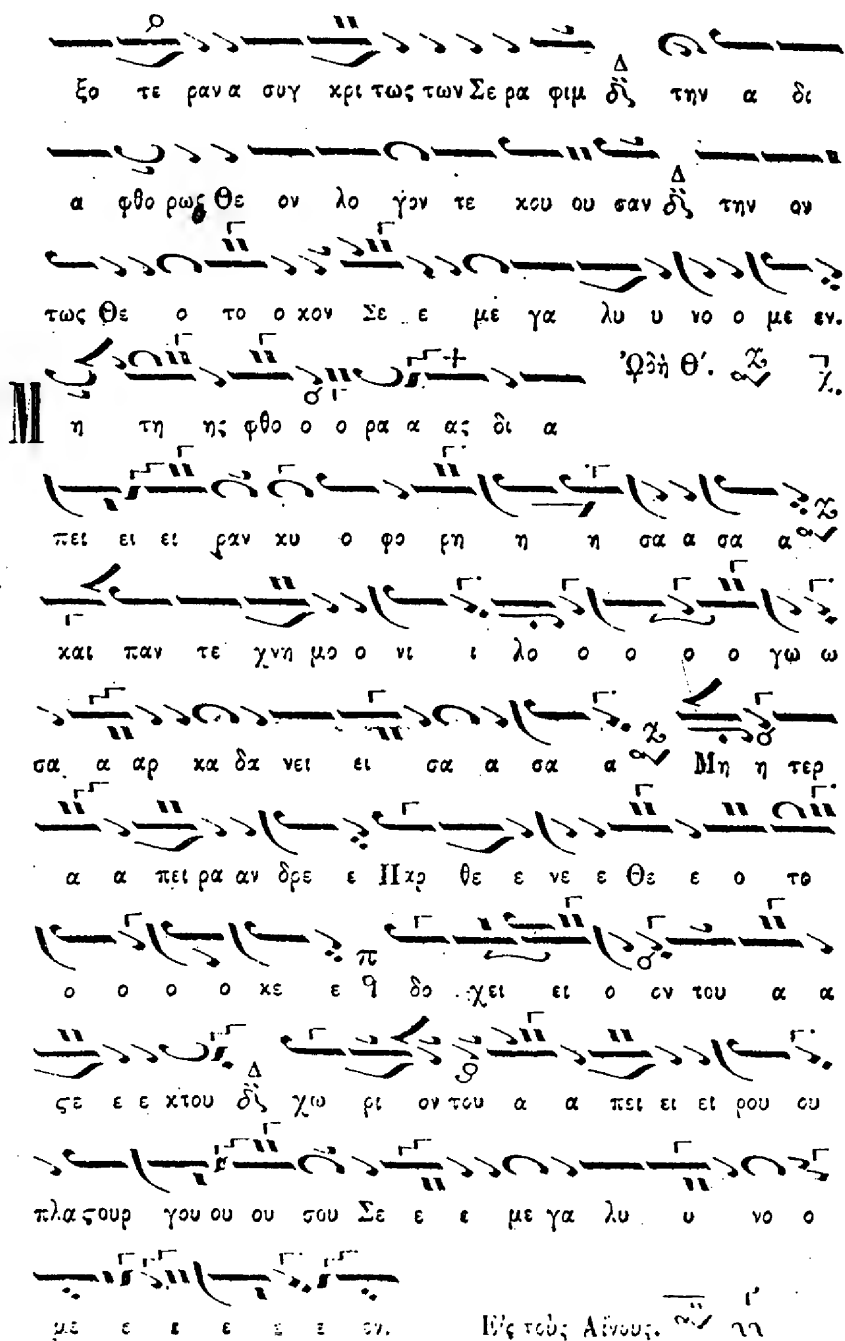 ξο τε ραν α συγ κρι τως των Σε ρα φιμ δι την α δι
α φθο ρως Θε ον λο γον τε κου ου σαν δι την ον
τως Θε ο το ο κον Σε ε με γα λυ υ νο ο με εν.
Ὠδὴ Θʹ.
Μ η τη ης φθο ο ο ρα α ας δι α
πει ει ει ραν κυ ο φο ρη η η σα α σα α
και παν τε χνη μο ο νι ι λο ο ο ο ο γω ω
σα α αρ κα δα νει ει σα α σα α Μη η τερ
α α πει ρα αν δρε ε Παρ θε ε νε ε Θε ε ο το
ο ο ο ο κε ε π δο χει ει ο ον του α α
ςε ε ε κτου δι χω ρι ον του α α πει ει ει ρου ου
πλα ςουρ γου ου ου σου Σε ε ε με γα λυ υ νο ο
με ε ε ε ε ε εν. Εἰς τοὺς Αἴνους.